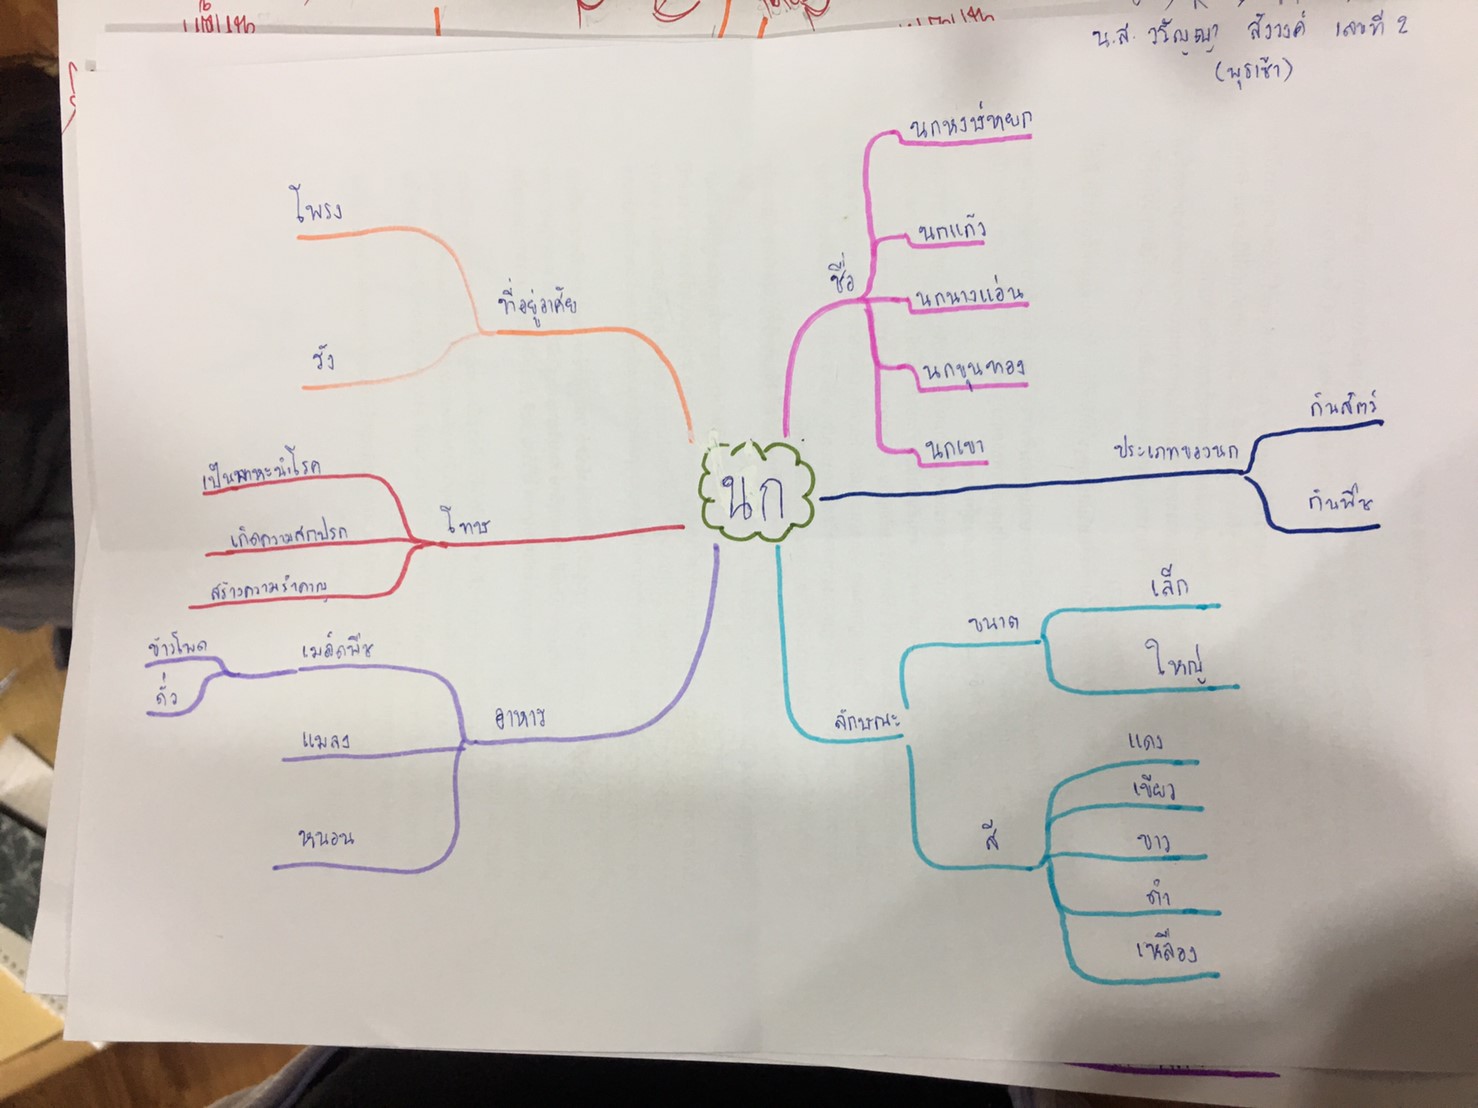 น.ส. วริญญา สังวงค์ เลขที่ 2
(พุธเช้า)
นก
ชื่อ
นกหงษ์หยก
นกแก้ว
นกนางแอ่น
นกขุนทอง
นกเขา
ประเภทของนก
กินสัตว์
กินพืช
ลักษณะ
ขนาด
เล็ก
ใหญ่
สี
แดง
เขียว
ขาว
ดำ
เหลือง
อาหาร
เมล็ดพืช
ข้าวโพด
ถั่ว
แมลง
หนอน
โทษ
เป็นพาหะนำโรค
เกิดความสกปรก
สร้างความรำคาญ
ที่อยู่อาศัย
โพรง
รัง